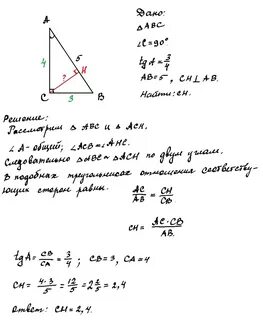 A
4
5
?
H
C
3
B
Дано:
△ABC
∠C=90°
tgA = 3/4
AB=5, CH⊥AB.
Найти: CH.
Решение:
Рассмотрим △ABC и △ACH.
∠A-общий; ∠ACB=∠AHC.
Следовательно △ABC ~ △ACH по двум углам.
В подобных треугольниках отношения соответству-
ющих сторон равны. AC/AB = CH/CB
CH = AC·CB/AB.
tgA = CB/CA = 3/4; CB=3, CA=4
CH = 4·3/5 = 12/5 = 2 2/5 = 2,4
Ответ: CH=2,4.